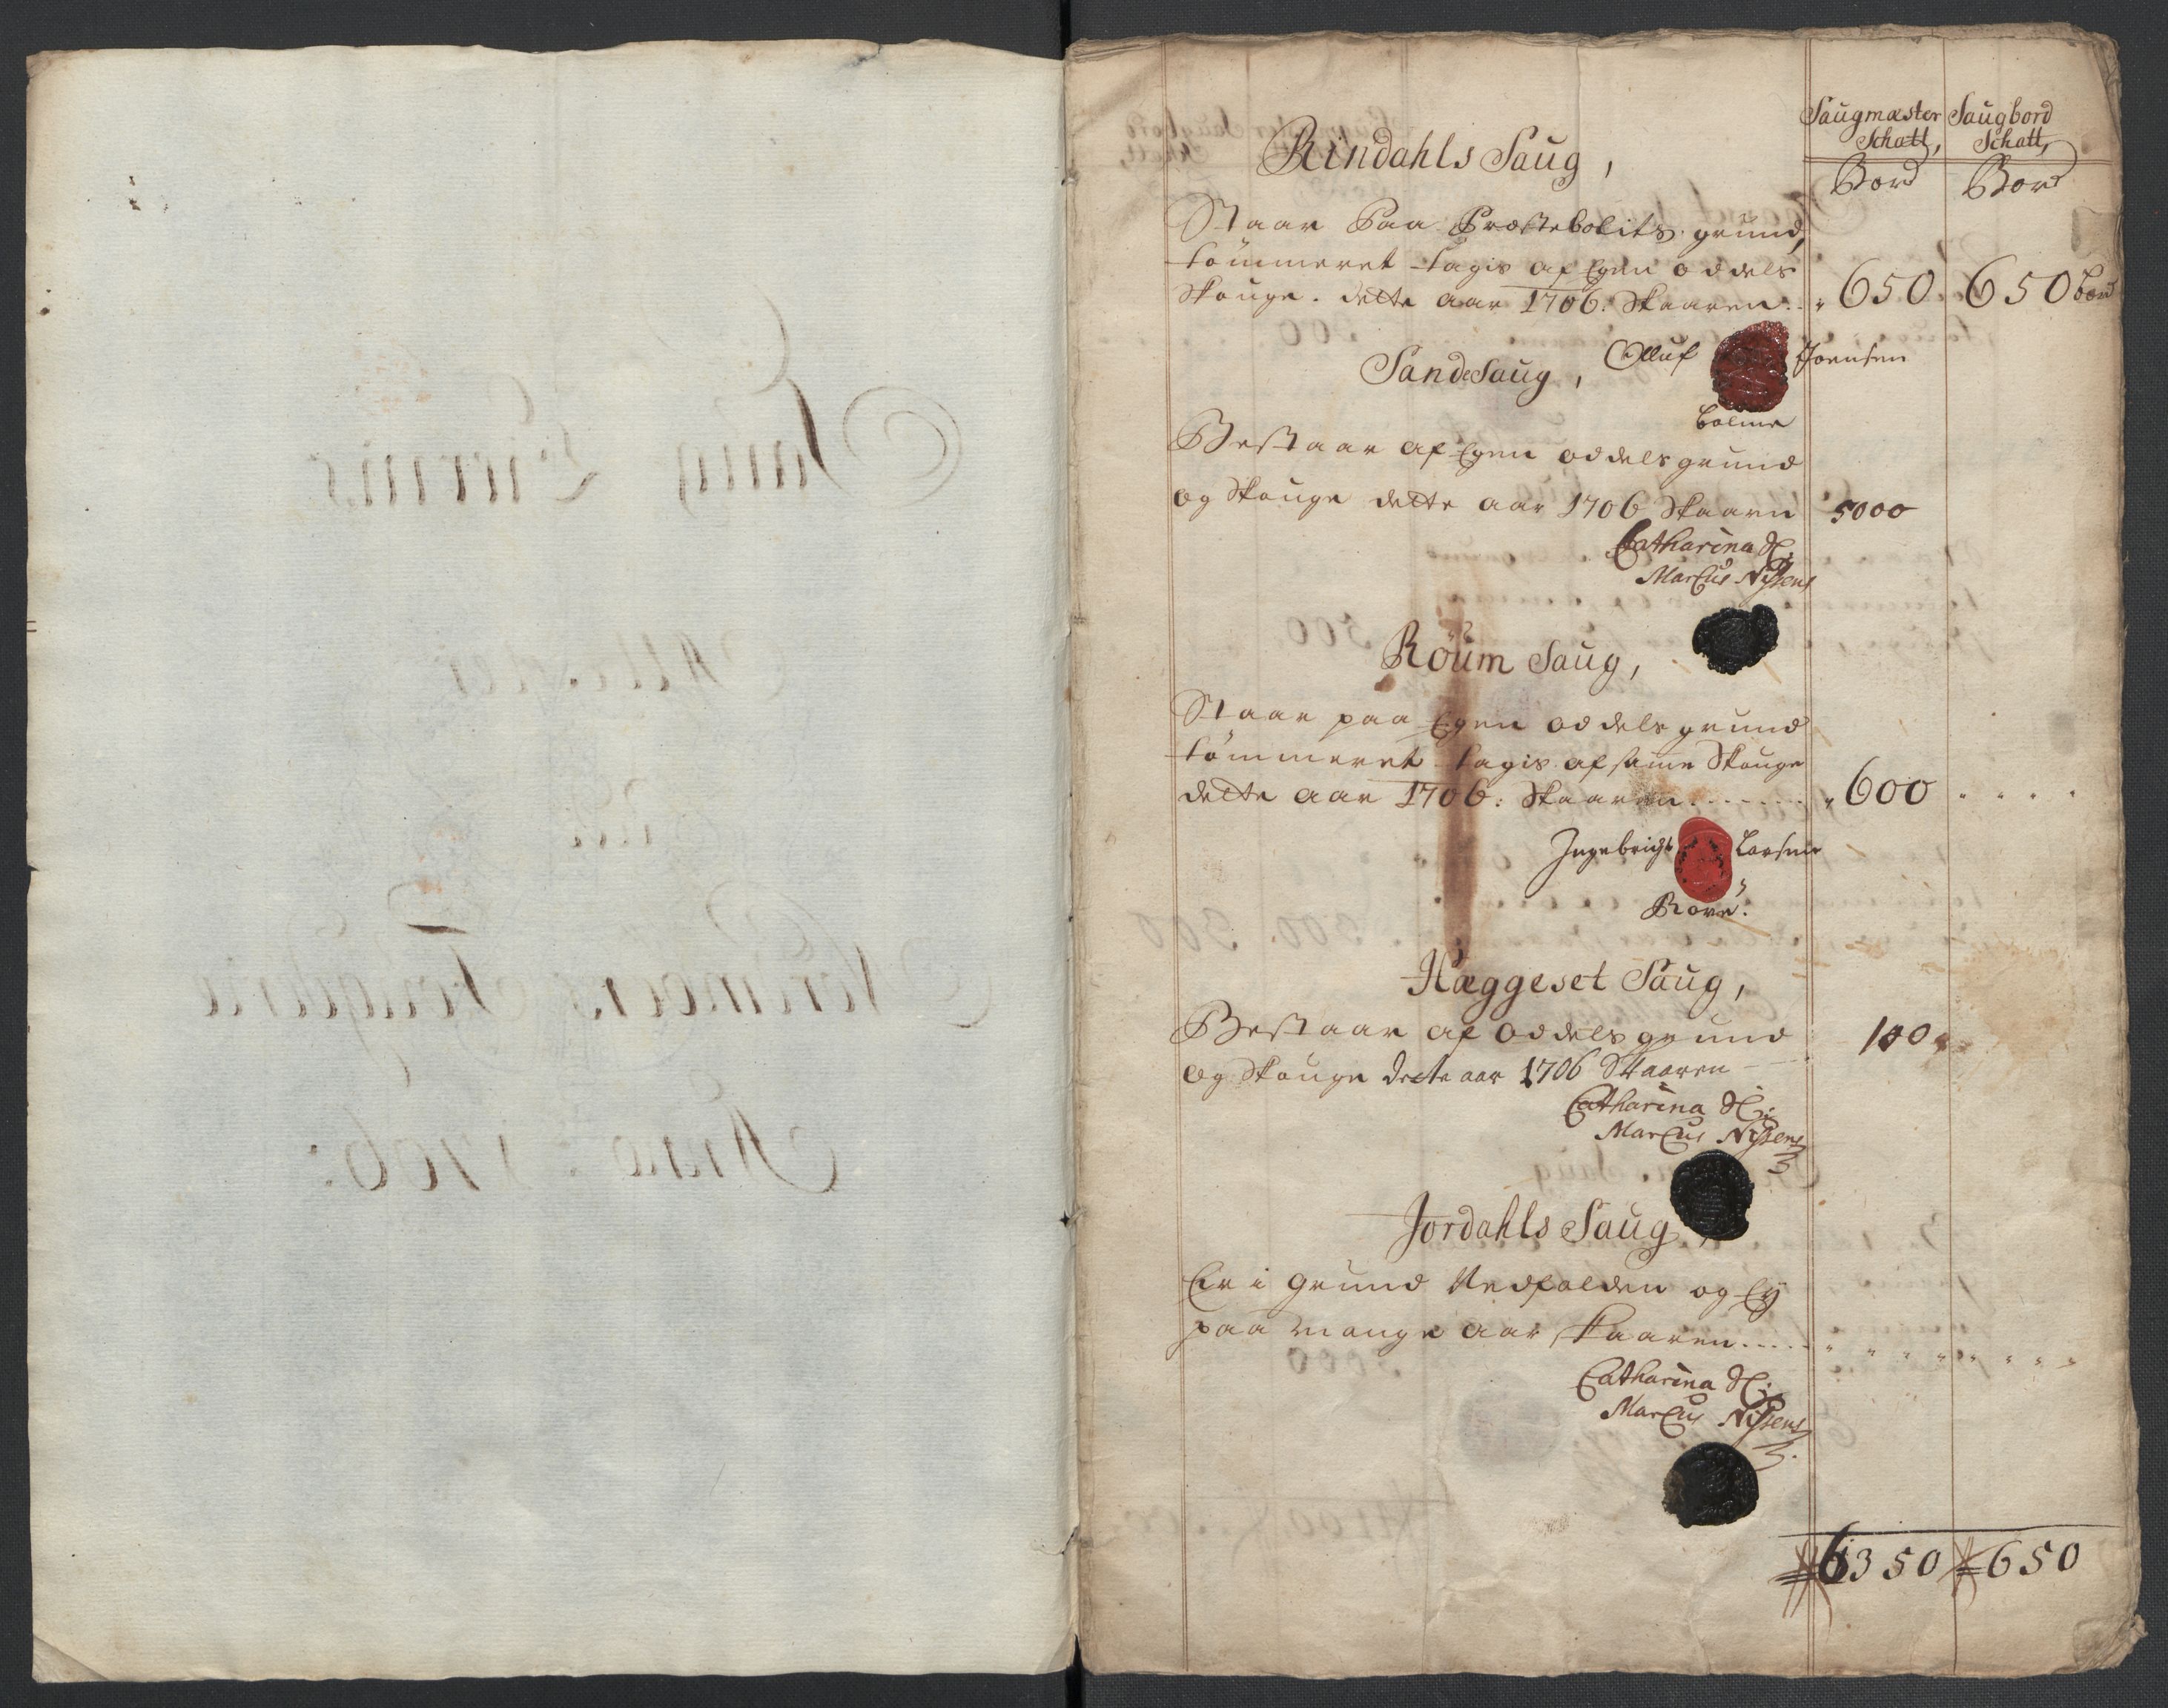 Saugmæster Schatt,
Saugbord Schatt,
Bord
Bord
Rindahls Saug,
Staar Paa Præstebolits grund,
tømmeret tagis af Egen oddels
Skouge. dette aar 1706: Skaaren. 650 650 bord
Olluf Joensen
Bolme
SandeSaug,
Bestaar af Egen oddels grund
og Skouge dette aar 1706 Skaaren 5000
Catharina Sl:
Marcus Nissens
Röum Saug,
Staar paa Egen oddels grund
tømmeret tagis af samme Skouge
dette aar 1706: Skaaren 600
Ingebricht Larsen
Hæggeset Saug,
Bestaar af oddels grund
og Skouge dette aar 1706 Skaaren 100
Catharina Sl:
Marcus Nissens
Jordahls Saug,
Er i grund Nedfalden og Ey
paa mange aar skaaren
Catharina Sl:
Marcus Nissens
6350 650